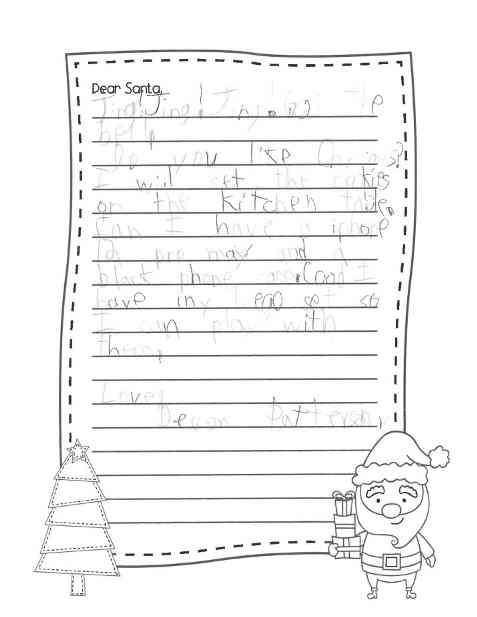 Dear Santa,
Jingling! Jingling The
bell
Do you like Cookies?
I will set the cokies
on the kitchen table.
Can I have a iphone
pro max and a
black phone and I
have my lego set so
I can play with
them.
Love,
Deacon Patterson